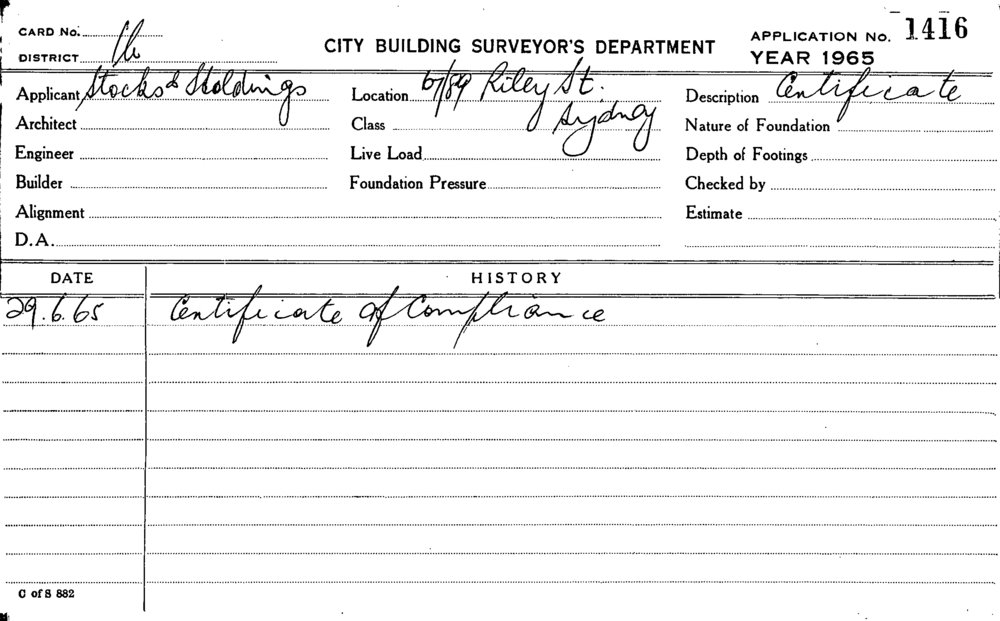 CARD No.
DISTRICT
CITY BUILDING SURVEYOR'S DEPARTMENT
APPLICATION No. 1416
YEAR 1965
Applicant Stocks & Holdings
Location 67/89 Riley St. Sydney
Description Certificate
Architect
Class
Nature of Foundation
Engineer
Live Load
Depth of Footings
Builder
Foundation Pressure
Checked by
Alignment
Estimate
D.A.
DATE HISTORY
29.6.65 Certificate of Compliance
C of S 882